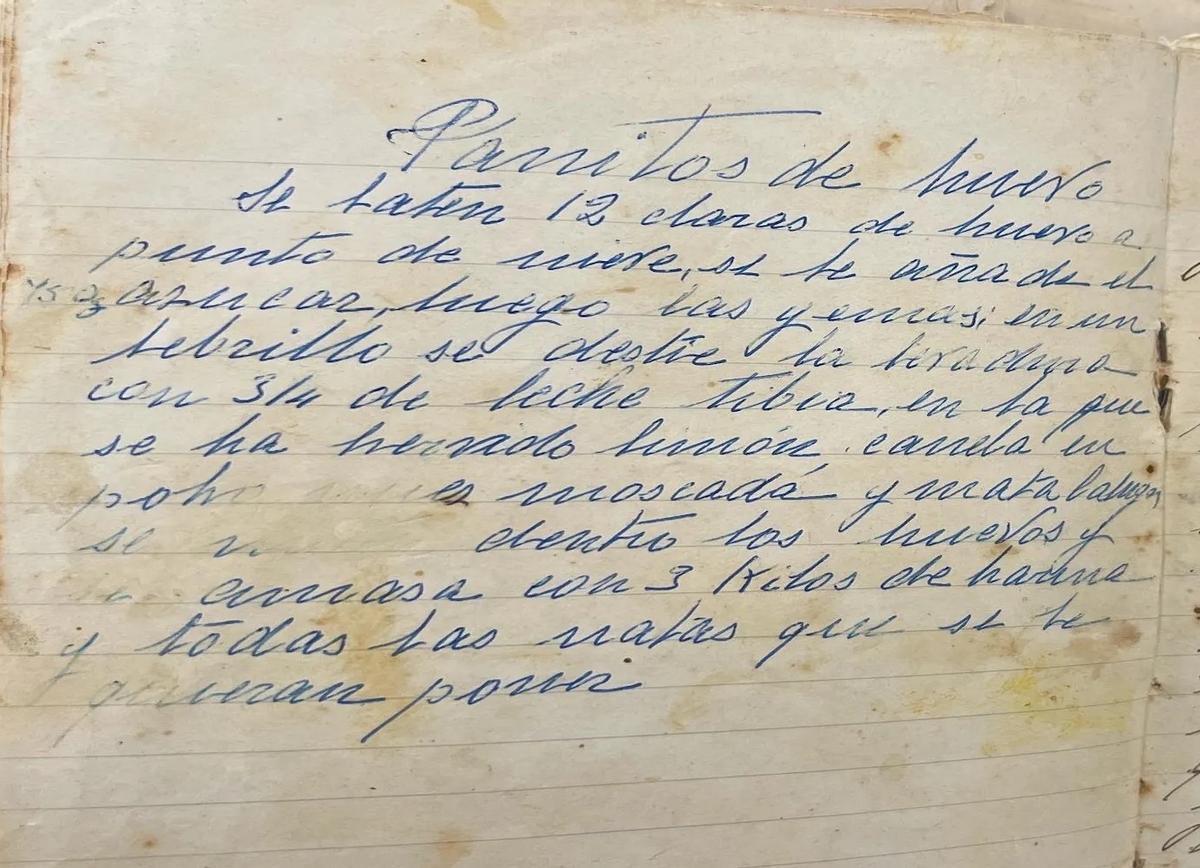 Panitos de huevo
Se baten 12 claras de huevo a
punto de nieve, se le añade el
azucar, luego las yemas; en un
lebrillo se deslie la levadura
con 3/4 de leche tibia, en la que
se ha hervido limón, canela en
polvo es moscadá y matalahuga
se dentro los huevos y
amasa con 3 Kilos de harina
y todas las natas que se le
quieran poner